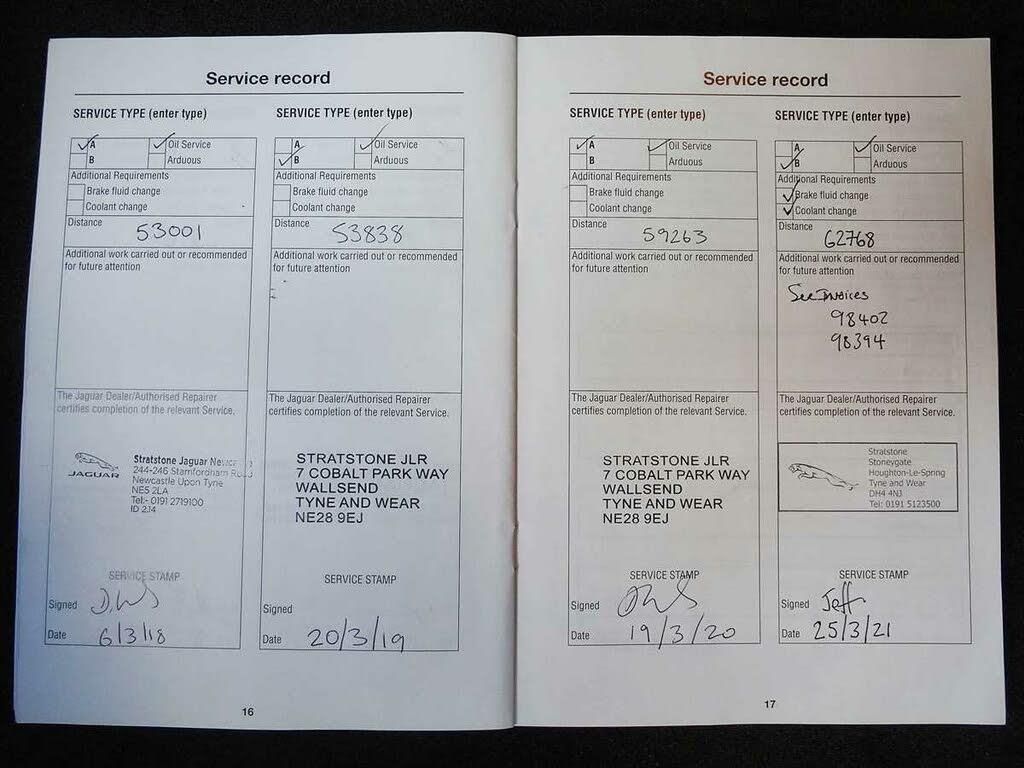 Service record
SERVICE TYPE (enter type)
A
Oil Service
B
Arduous
Additional Requirements
Brake fluid change
Coolant change
Distance
53001
Additional work carried out or recommended
for future attention
The Jaguar Dealer/Authorised Repairer
certifies completion of the relevant Service.
JAGUAR
Stratstone Jaguar
244-246 Stamfordham
Newcastle Upon Tyne
NE5 2LA
Tel:- 0191 2719100
ID 2.14
SERVICE STAMP
Signed
Date 6/3/18
SERVICE TYPE (enter type)
A
Oil Service
B
Arduous
Additional Requirements
Brake fluid change
Coolant change
Distance
53838
Additional work carried out or recommended
for future attention
The Jaguar Dealer/Authorised Repairer
certifies completion of the relevant Service.
STRATSTONE JLR
7 COBALT PARK WAY
WALLSEND
TYNE AND WEAR
NE28 9EJ
SERVICE STAMP
Signed
Date 20/3/19
16
Service record
SERVICE TYPE (enter type)
A
Oil Service
B
Arduous
Additional Requirements
Brake fluid change
Coolant change
Distance
59263
Additional work carried out or recommended
for future attention
The Jaguar Dealer/Authorised Repairer
certifies completion of the relevant Service.
STRATSTONE JLR
7 COBALT PARK WAY
WALLSEND
TYNE AND WEAR
NE28 9EJ
SERVICE STAMP
Signed
Date 19/3/20
SERVICE TYPE (enter type)
A
Oil Service
B
Arduous
Additional Requirements
Brake fluid change
Coolant change
Distance
62768
Additional work carried out or recommended
for future attention
See Invoices
98402
98394
The Jaguar Dealer/Authorised Repairer
certifies completion of the relevant Service.
Stratstone
Stoneygate
Houghton-Le-Spring
Tyne and Wear
DH4 4NJ
Tel: 0191 5123500
SERVICE STAMP
Signed Jeff
Date 25/3/21
17